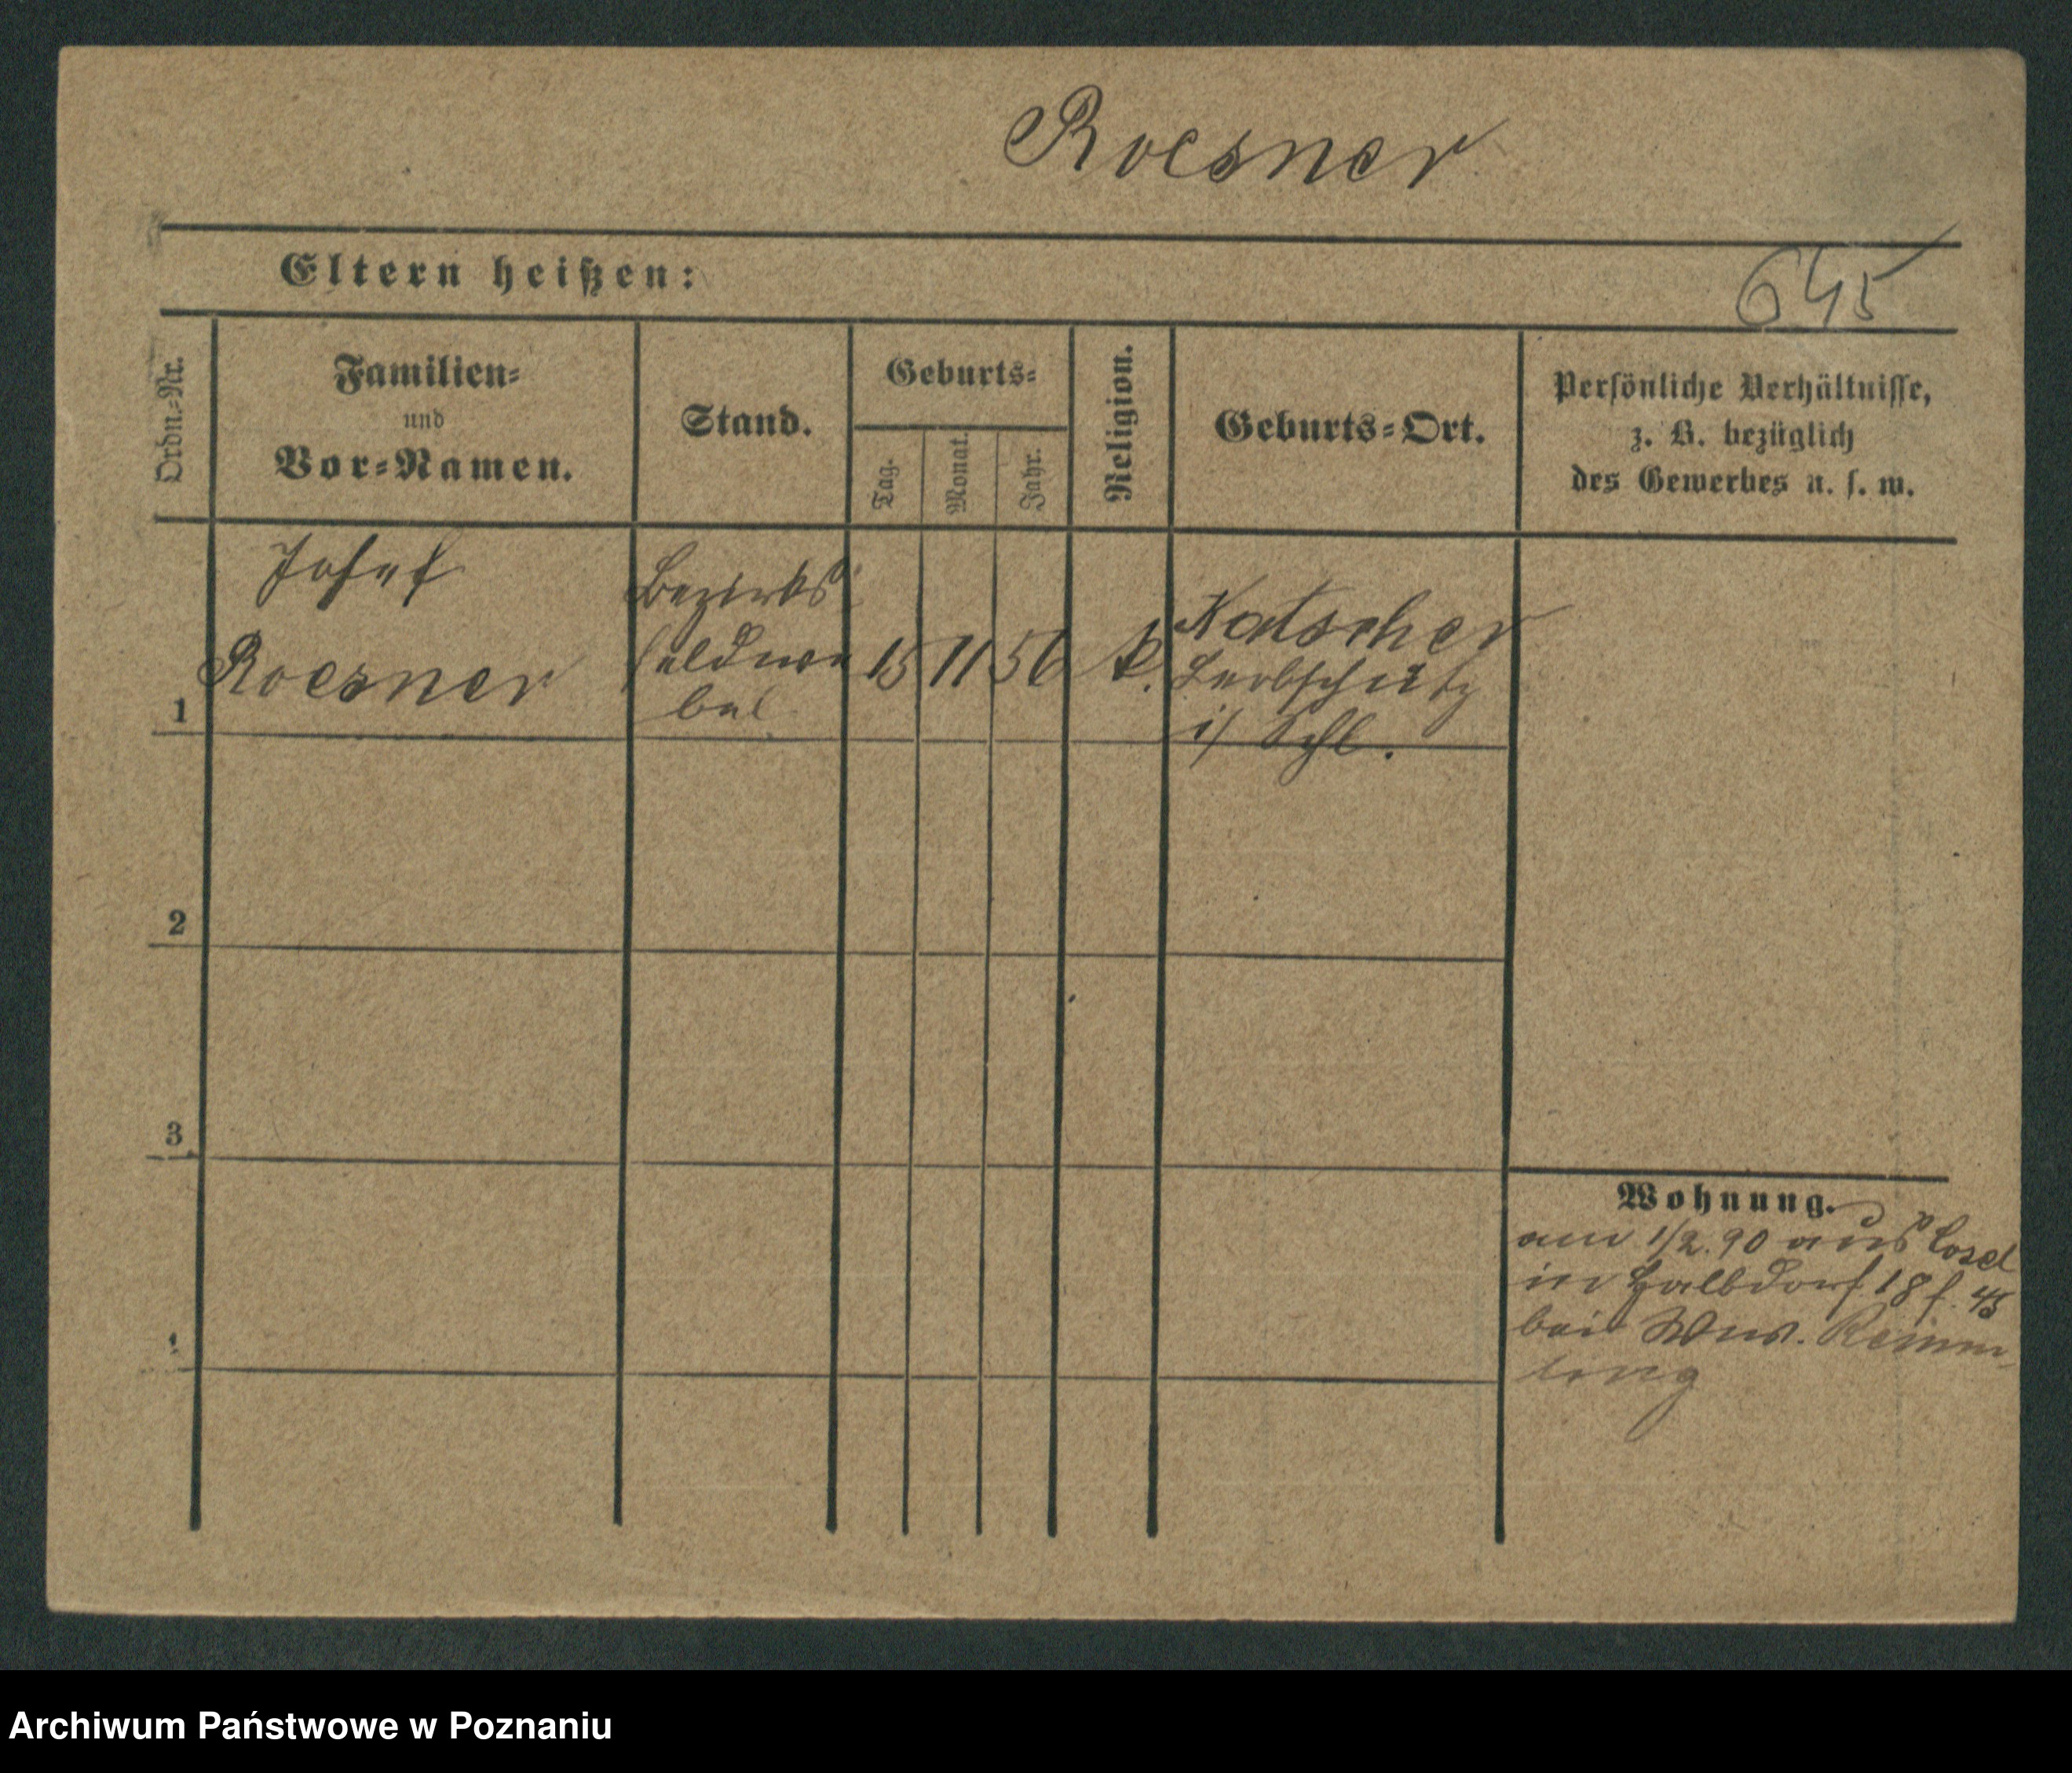 Roesner
Eltern heißen:
645
Ordn.-Nr.
Familien-
und
Vor-Namen.
Stand.
Geburts-
Tag.
Monat.
Jahr.
Religion.
Geburts-Ort.
Persönliche Verhältnisse,
z. B. bezüglich
des Gewerbes u. s. w.
Josef
Roesner
Bezirks
feldwe
bel
15 11 56 k.
Katscher
Leobschütz
i/ Schl.
1
2
3
Wohnung.
am 1/2. 90 aus Cosel
in Halbdorf 18
bei Wwe.
Archiwum Państwowe w Poznaniu